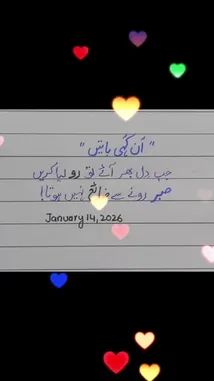 "ان کہی باتیں"
جب دل بھر آئے تو رو لیا کریں
صبر رونے سے ضائع نہیں ہوتا!
January 14, 2026